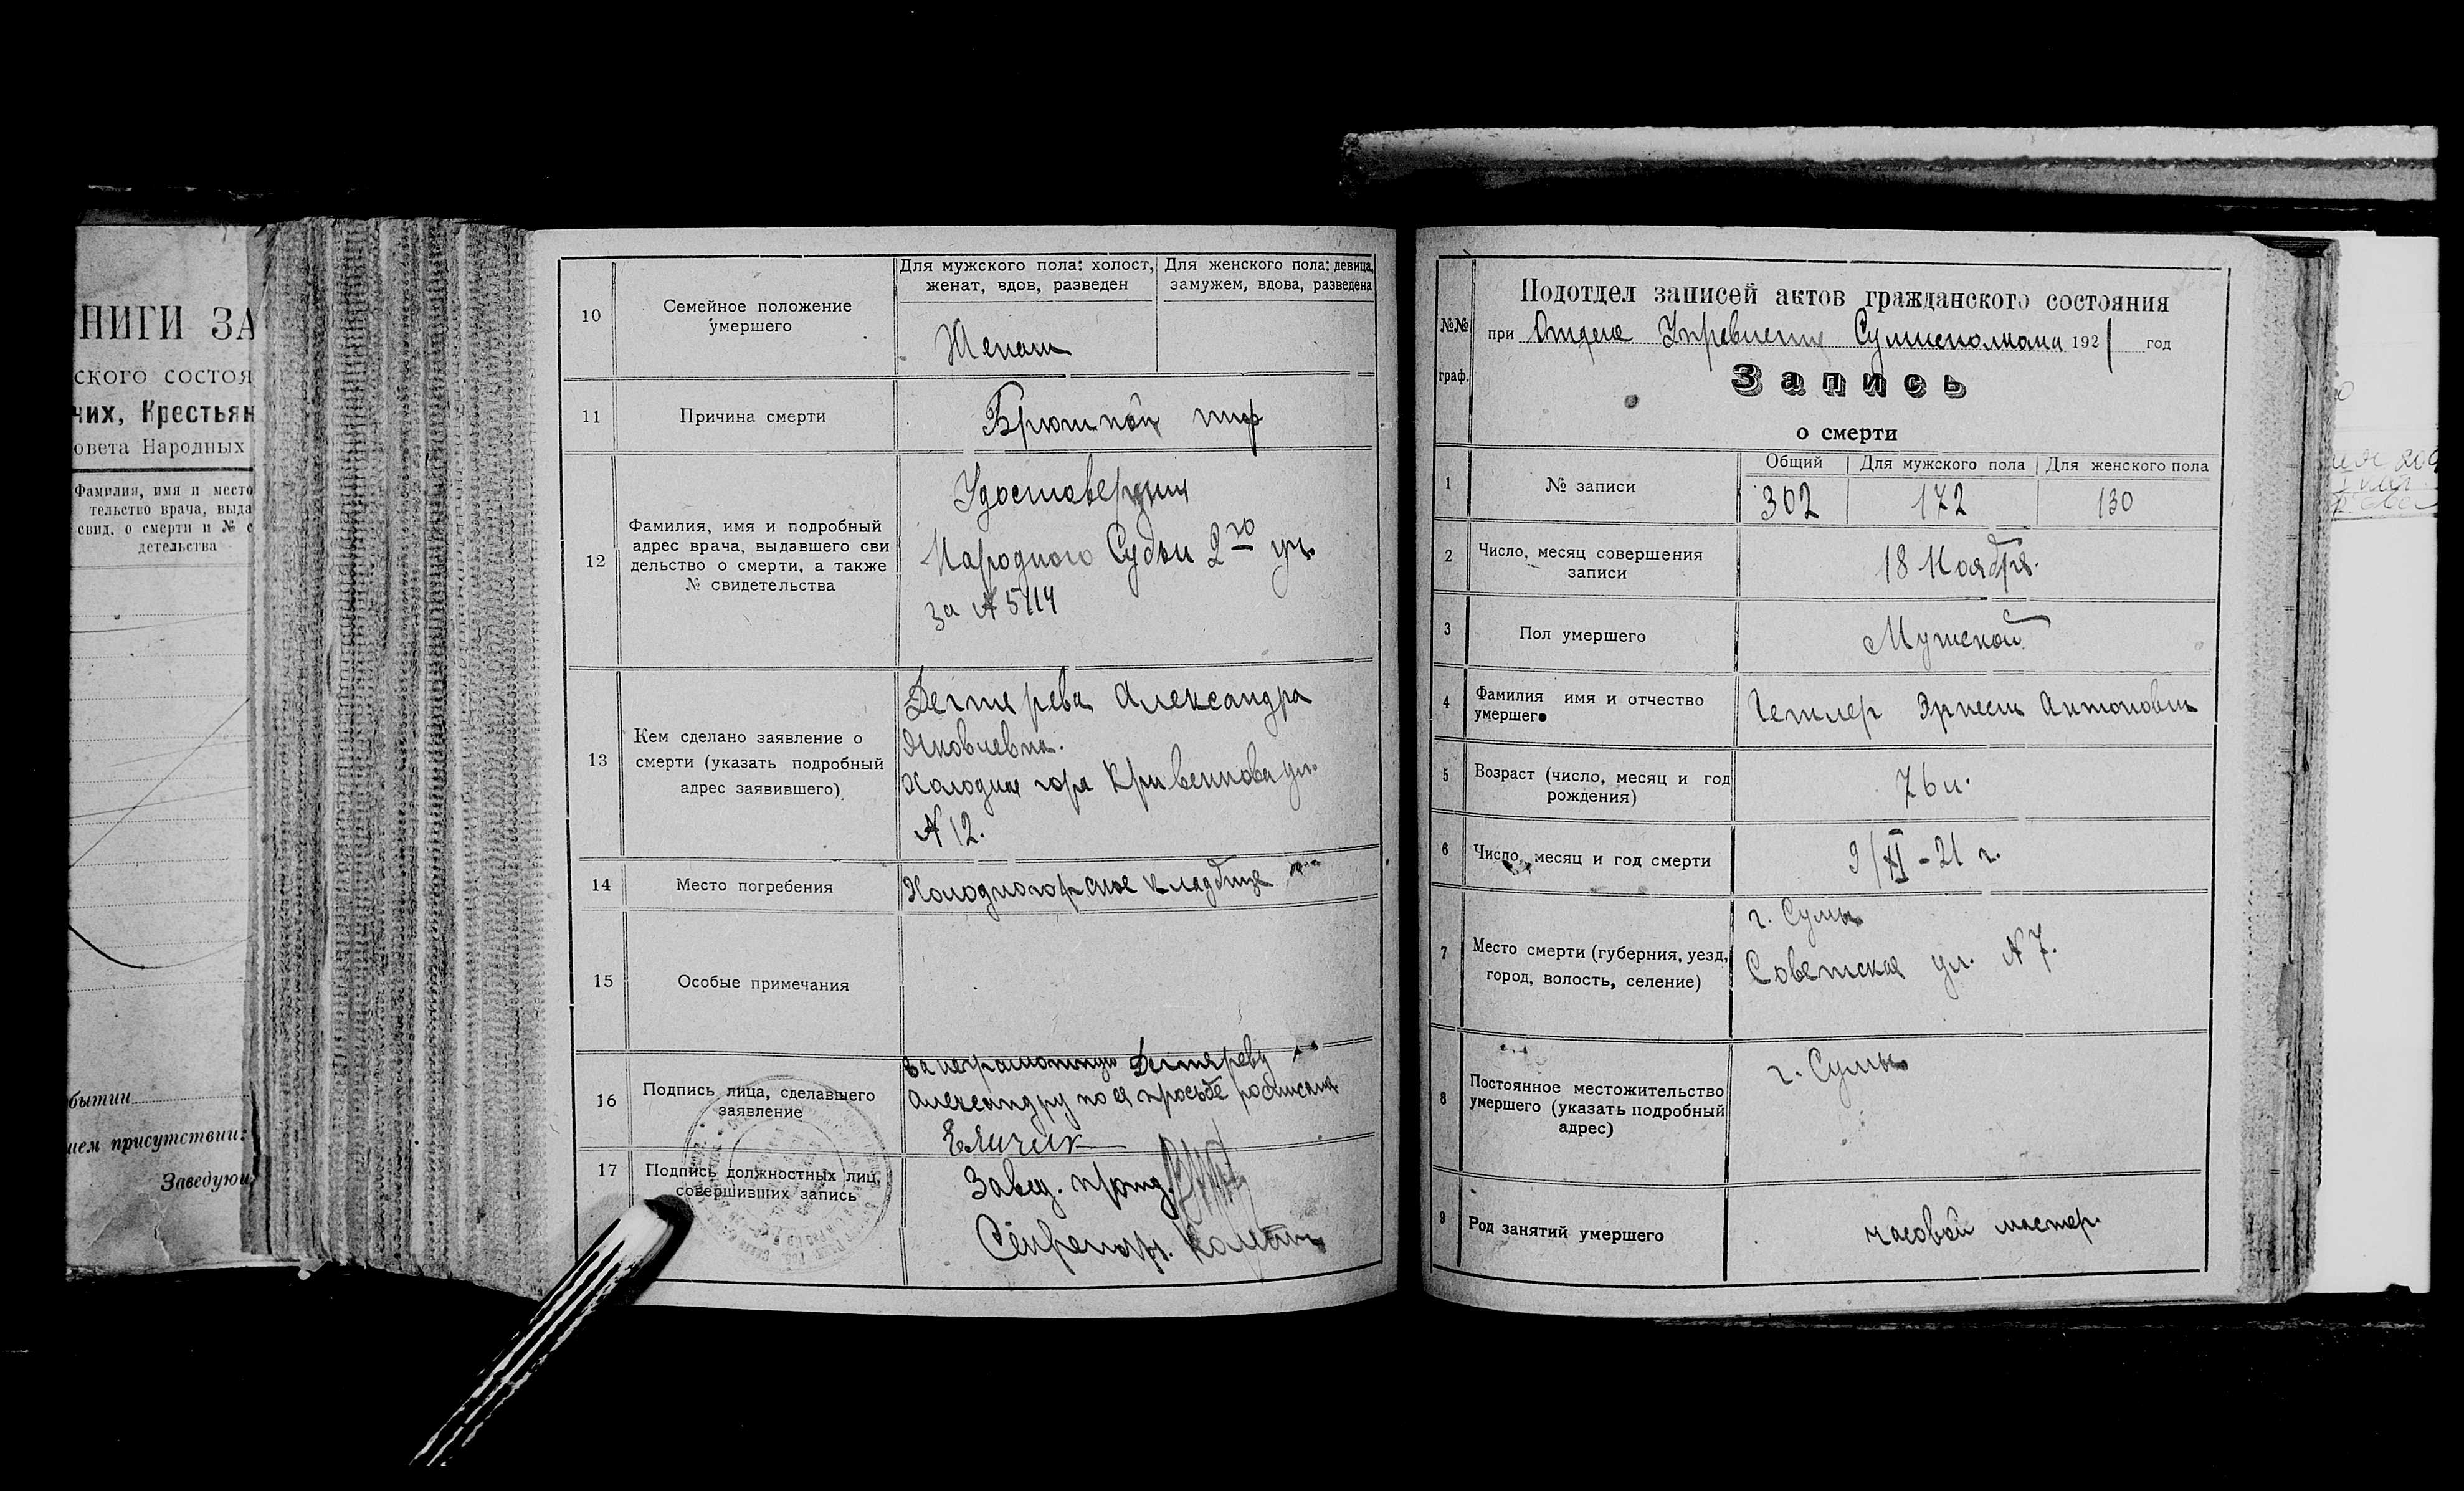 НИГИ ЗА
ского состоя
чих, Крестьян
овета Народных
Фамилия, имя и место
тельство врача, выда
свид. о смерти и № с
детельства
бытии
ием присутствии:
Заведую
10
Семейное положение
умершего
Для мужского пола: холост,
женат, вдов, разведен
Для женского пола: девица,
замужем, вдова, разведена
Женат
11
Причина смерти
Брюшной тиф
12
Фамилия, имя и подробный
адрес врача, выдавшего сви
дельство о смерти, а также
№ свидетельства
Удостоверения
Народного Судьи 2го уч.
за № 5114
13
Кем сделано заявление о
смерти (указать подробный
адрес заявившего)
Дегтярева Александра
Яковлевна.
Холодная гора Кривенкова ул.
№ 12.
14
Место погребения
Холодногорское кладбище
15
Особые примечания
16
Подпись лица, сделавшего
заявление
За неграмотную Дегтяреву
Александру по ея просьбе росписался
17
Подпись должностных лиц,
совершивших запись
Завед.
Секретарь
№№
граф.
Подотдел записей актов гражданского состояния
при Отделе Управления Сумисполкома 1921 год
Запись
о смерти
1
№ записи
Общий
Для мужского пола
Для женского пола
302
172
130
2
Число, месяц совершения
записи
18 Ноября.
3
Пол умершего
Мужской
4
Фамилия имя и отчество
умершего
Гетлер Эрнест Антонович
5
Возраст (число, месяц и год
рождения)
76 л.
6
Число, месяц и год смерти
9/XI - 21 г.
7
Место смерти (губерния, уезд,
город, волость, селение)
г. Сумы
Советская ул. № 7.
8
Постоянное местожительство
умершего (указать подробный
адрес)
г. Сумы
9
Род занятий умершего
часовой мастер.